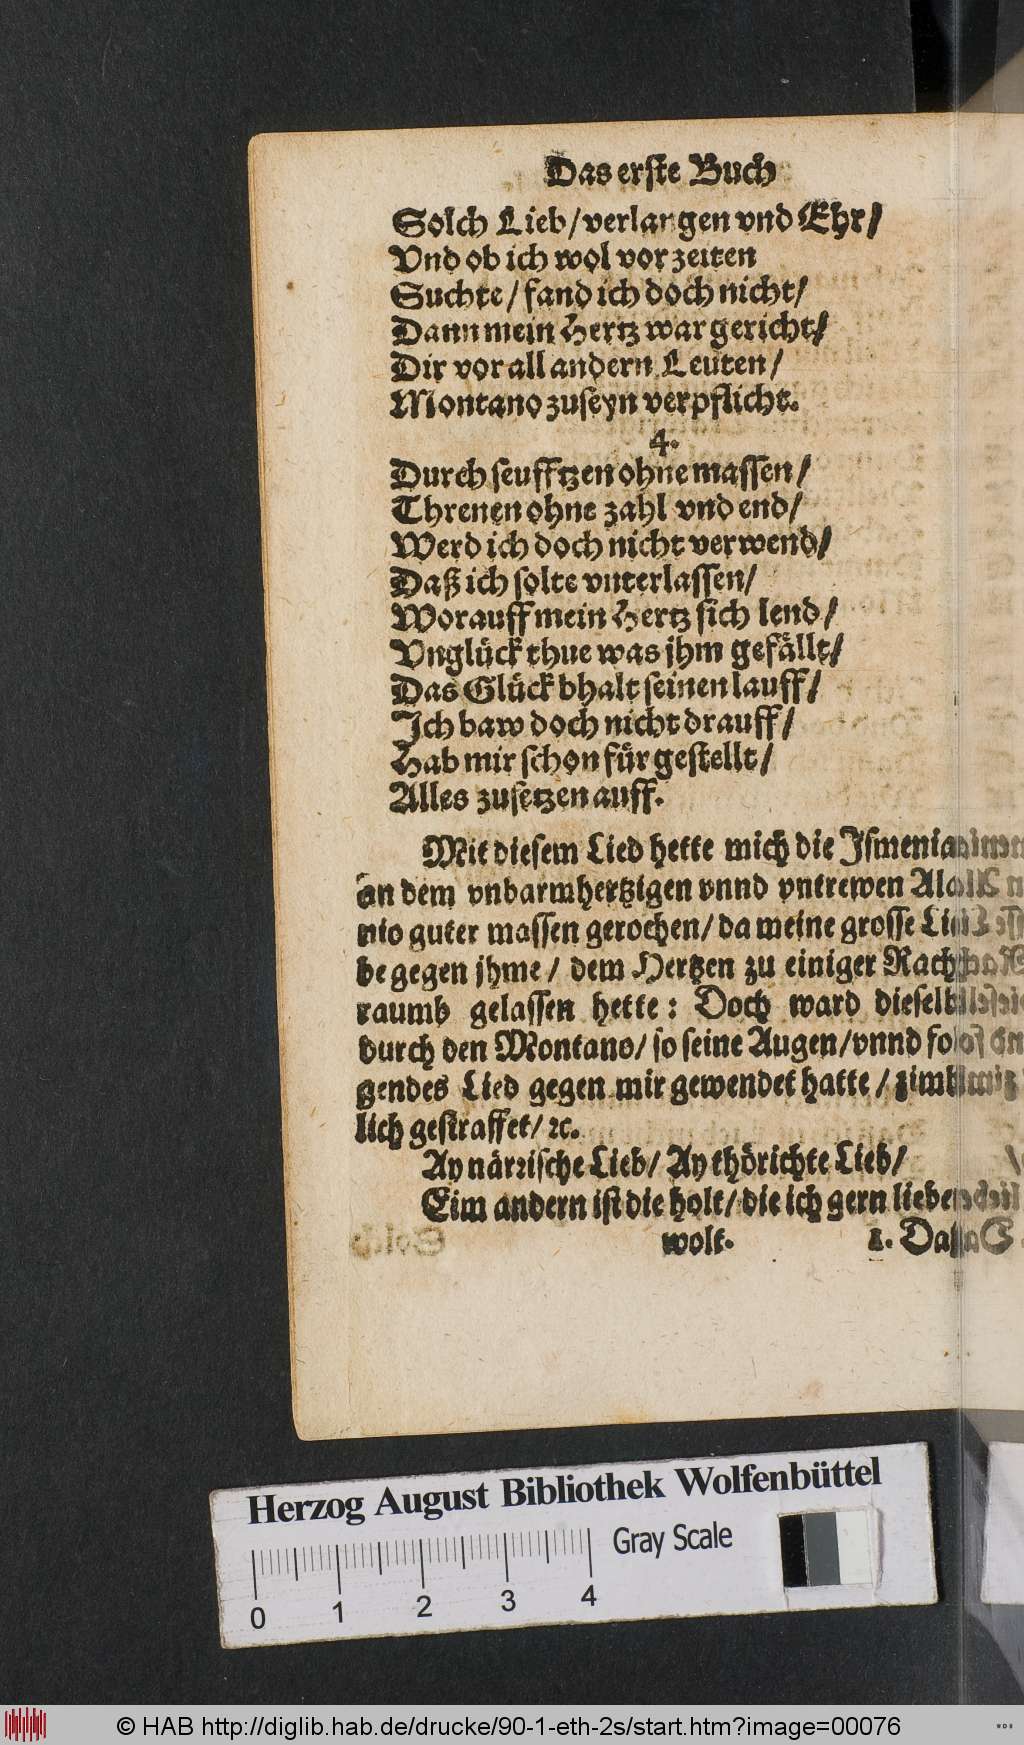 Das erste Buch
Solch Lieb/verlangen vnd Ehr/
Vnd ob ich wol vor zeiten
Suchte/ fand ich doch nicht/
Dann mein Hertz war gericht/
Dir vor all andern Leuten/
Montano zuseyn verpflicht.
4.
Durch seufftzen ohne massen/
Threnen ohne zahl vnd end/
Werd ich doch nicht verwend/
Daß ich solte vnterlassen/
Worauff mein Hertz sich lend/
Vnglück thue was jhm gefällt/
Das Glück bhalt seinen lauff/
Ich baw doch nicht drauff/
Hab mir schon für gestellt/
Alles zusetzen auff.
Mit diesem Lied hette mich die Ismenia
an dem vnbarmhertzigen vnnd vntrewen Ala
nio guter massen gerochen/ da meine grosse Lie
be gegen jhme/ dem Hertzen zu einiger Rach
raumb gelassen hette: Doch ward dieselb
durch den Montano/ so seine Augen/vnnd fol
gendes Lied gegen mir gewendet hatte/ zimb
lich gestraffet/ ꝛc.
Ay närrische Lieb/ Ay thörichte Lieb/
Eim andern ist die holt/ die ich gern lieben
wolt. 1. Daß
Herzog August Bibliothek Wolfenbüttel
0 1 2 3 4 Gray Scale
© HAB http://diglib.hab.de/drucke/90-1-eth-2s/start.htm?image=00076